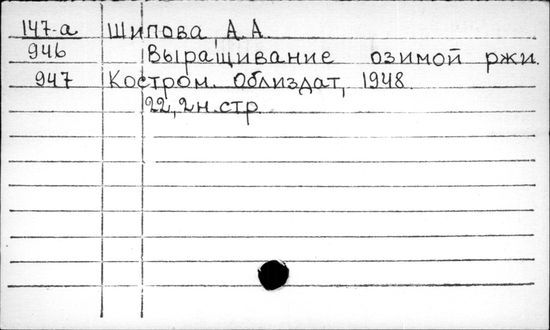 147-а Шипова, А.А.
946 Выращивание озимой ржи.
947 Костром. Облиздат, 1948.
22,2н.стр.